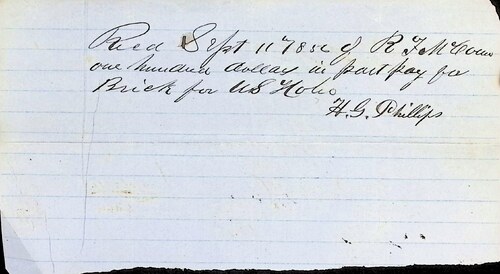 Recd Sept 11th 1856 of R J McComs
one hundred dollars in part pay for
Brick for US
H. G. Phillips